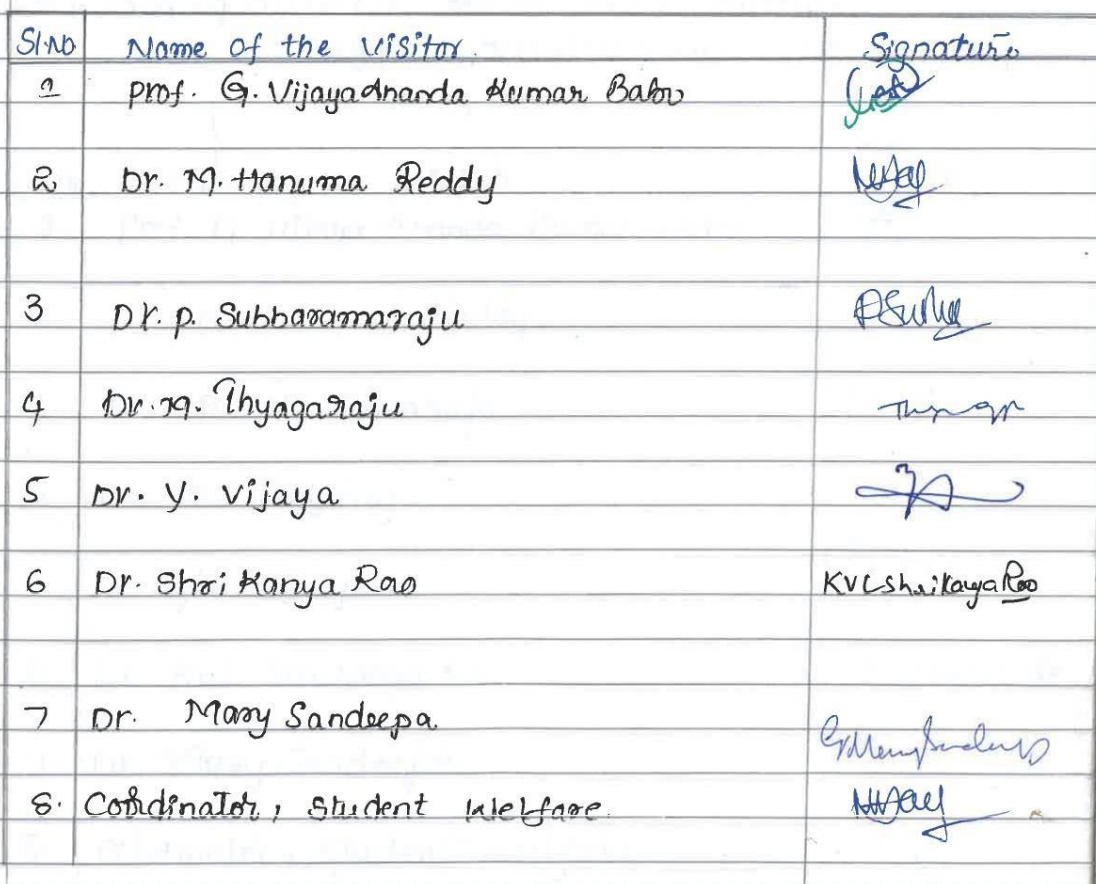 Sl.No Name of the Visitor. Signature
1 Prof. G. Vijaya Ananda Kumar Babu
2 Dr. M. Hanuma Reddy
3 Dr. P. Subbaramaraju
4 Dr. M. Thyagaraju
5 Dr. Y. Vijaya
6 Dr. Shri Kanya Rao KVLShriKanyaRao
7 Dr. Mary Sandeepa
8. Coordinator, Student Welfare.